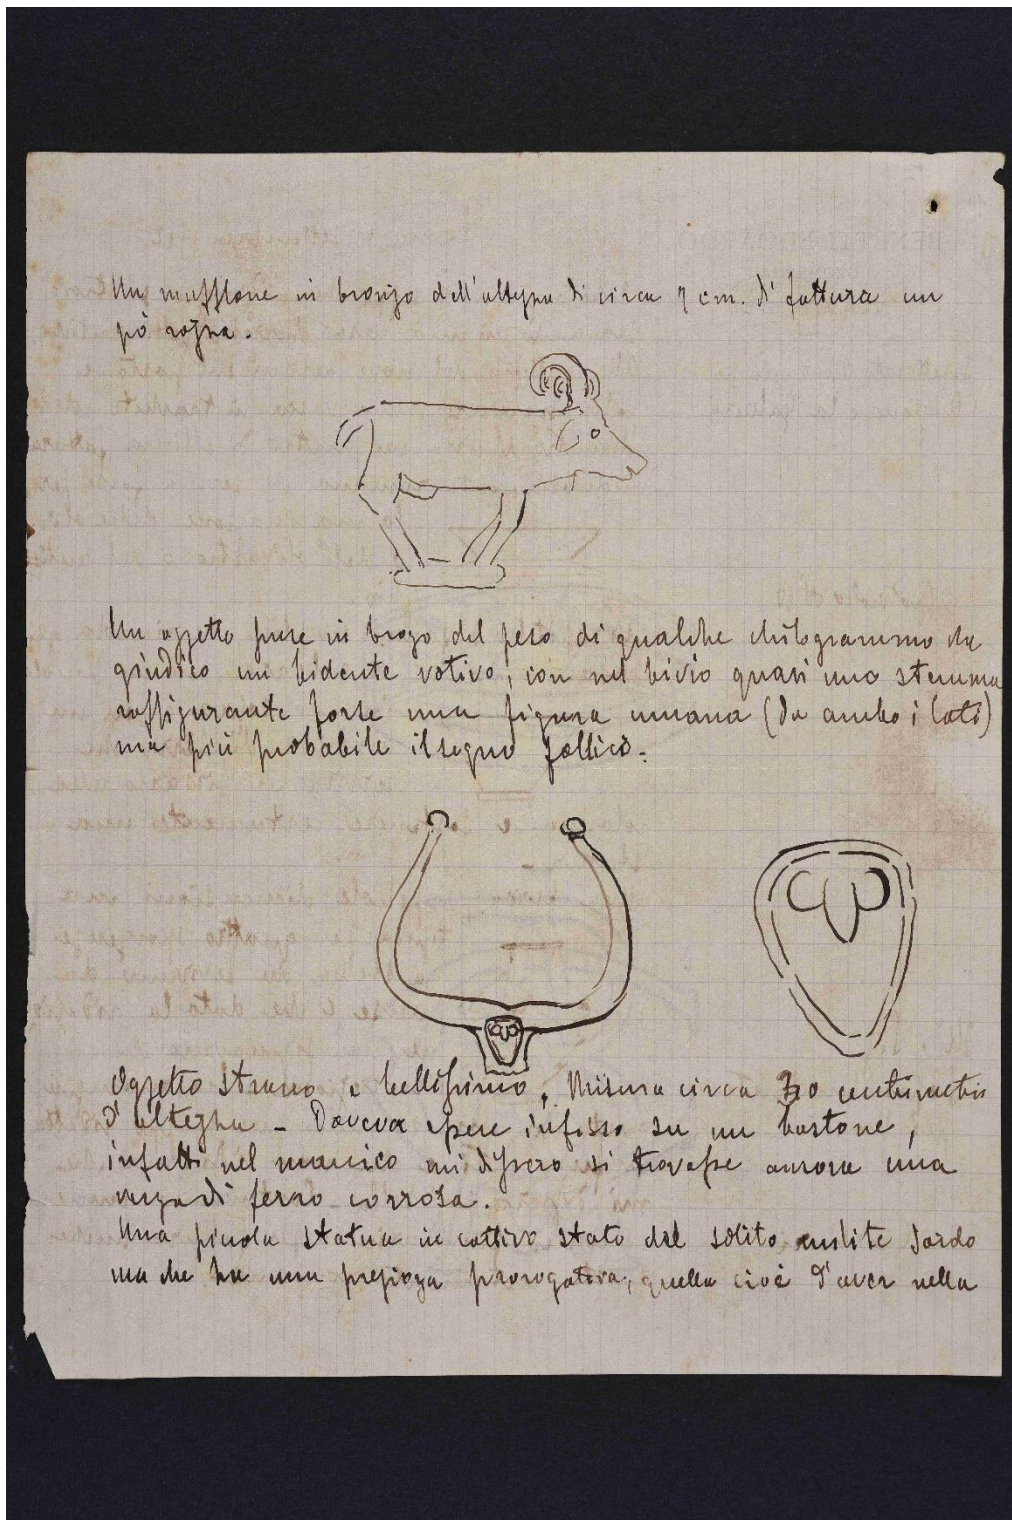 Un mufflone in bronzo dell'altezza di circa 7 cm. di fattura un
pò rozza.
Un oggetto pure in brozo del peso di qualche chilogrammo che
giudico un bidente votivo, con nel bivio quasi uno stemma
raffigurante forse una figura umana (da ambo i lati)
ma più probabile il segno fallico.
Oggetto strano e bellissimo, Misura circa 30 centimetri
d'altezza - Doveva essere infisso su un bastone,
infatti nel manico mi dissero si trovasse ancora una
di ferro corrosa.
Una piccola statua in cattivo stato del solito milite sardo
ma che ha una preziosa prorogativa, quella cioè d'aver nella